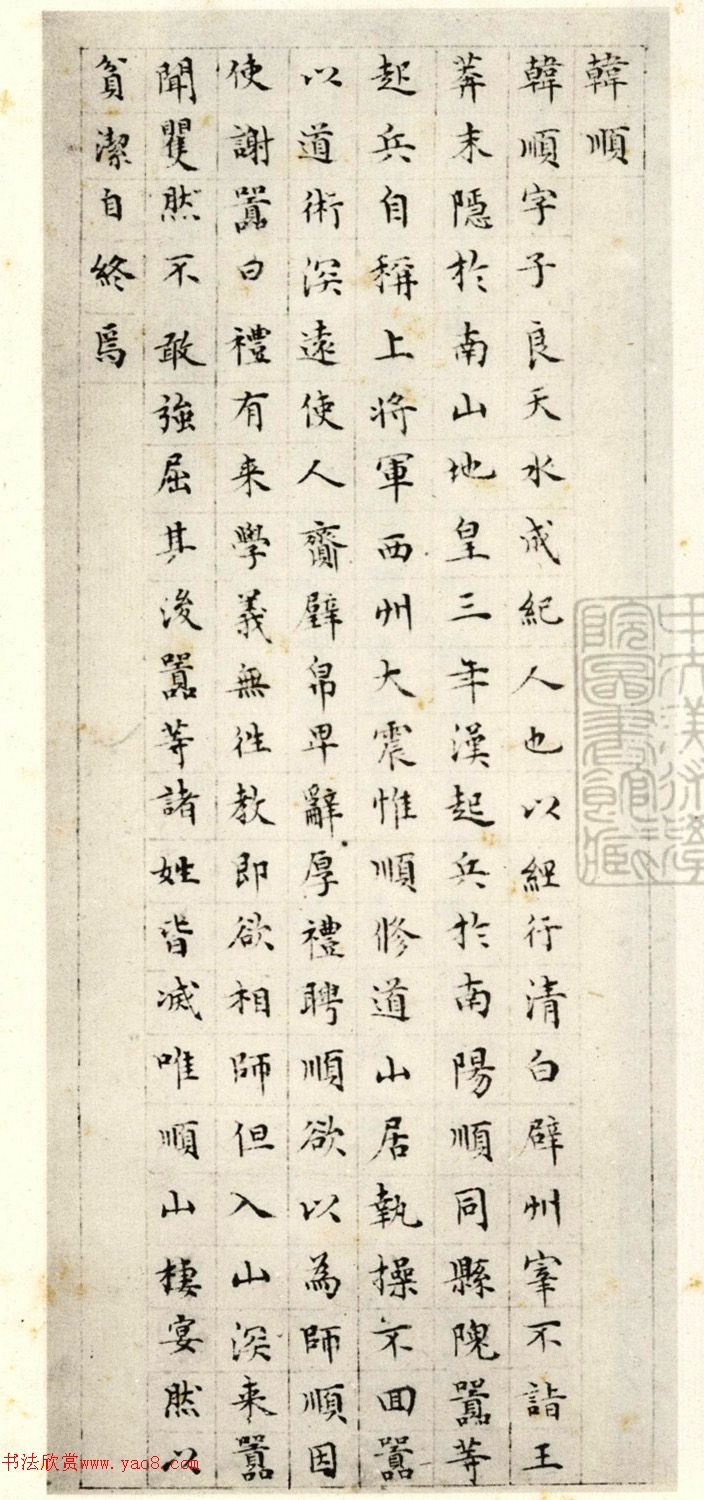 韓順
韓順字子良天水成紀人也以經行清白辟州宰不詣王
莽末隱於南山地皇三年漢起兵於南陽順同縣隗囂等
起兵自稱上將軍西州大震惟順修道山居執操不回囂
以道術深遠使人齎璧帛卑辭厚禮聘順欲以為師順因
使謝囂曰禮有来學義無往教即欲相師但入山深来囂
聞矍然不敢強屈其後囂等諸姓皆滅唯順山棲宴然以
貧潔自終焉
書館藏
书法欣赏www.yac8.com